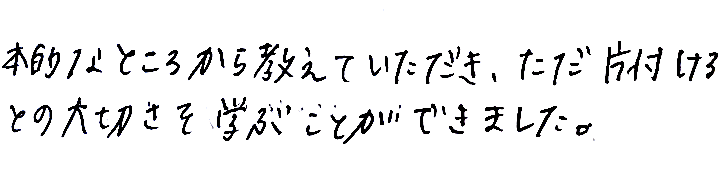 本的なところから教えていただき、ただ片付ける
との大切さを学ぶことができました。